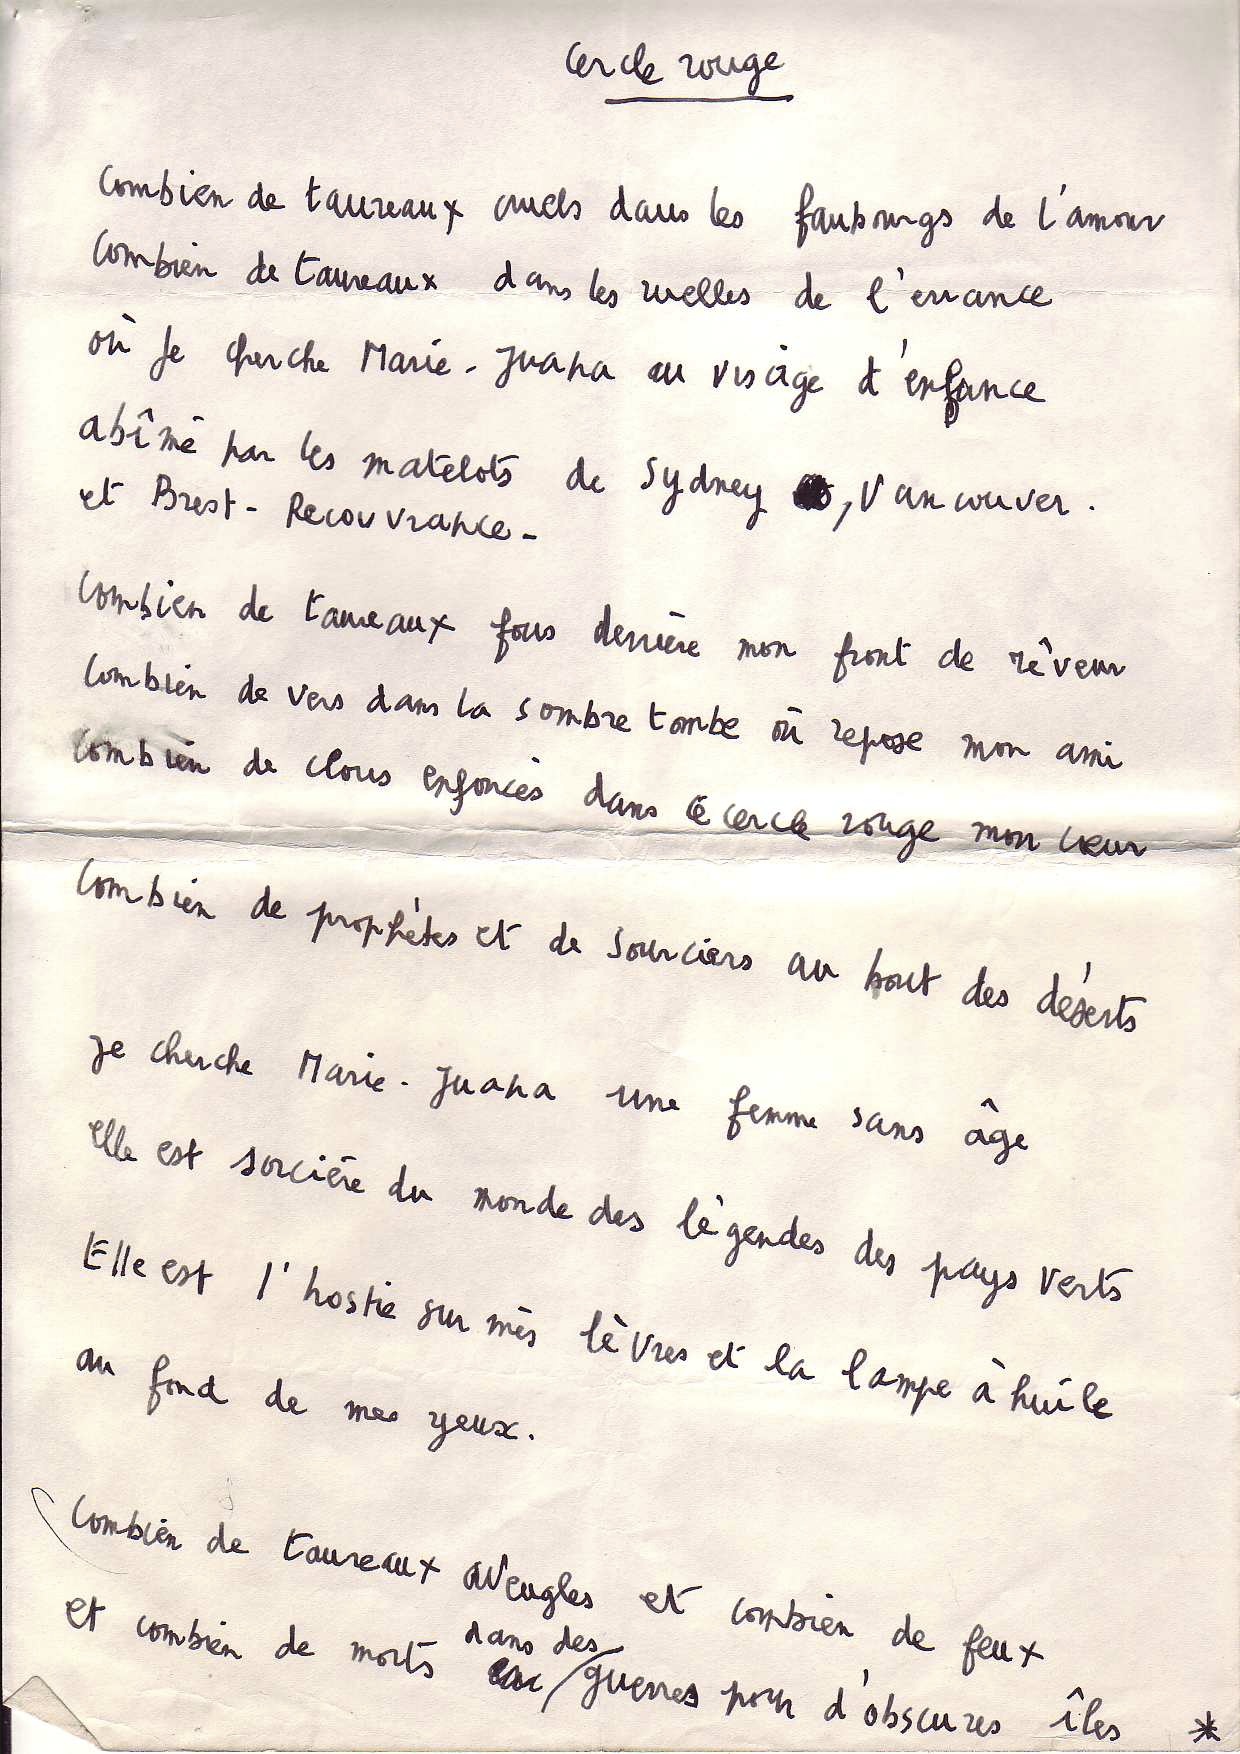 Cercle rouge
Combien de taureaux cruels dans les faubourgs de l'amour
Combien de taureaux dans les ruelles de l'errance
où je cherche Marie-Juana au visage d'enfance
abîmé par les matelots de Sydney, Vancouver.
et Brest-Recouvrance-
Combien de taureaux fous derrière mon front de rêveur
Combien de vers dans la sombre tombe où repose mon ami
Combien de clous enfoncés dans le cercle rouge mon cœur
Combien de prophètes et de sourciers au bout des déserts
Je cherche Marie-Juana une femme sans âge
elle est sorcière du monde des légendes des pays verts
Elle est l'hostie sur mes lèvres et la lampe à huile
au fond de mes yeux.
Combien de taureaux aveugles et combien de feux
et combien de morts dans des guerres pour d'obscures îles *